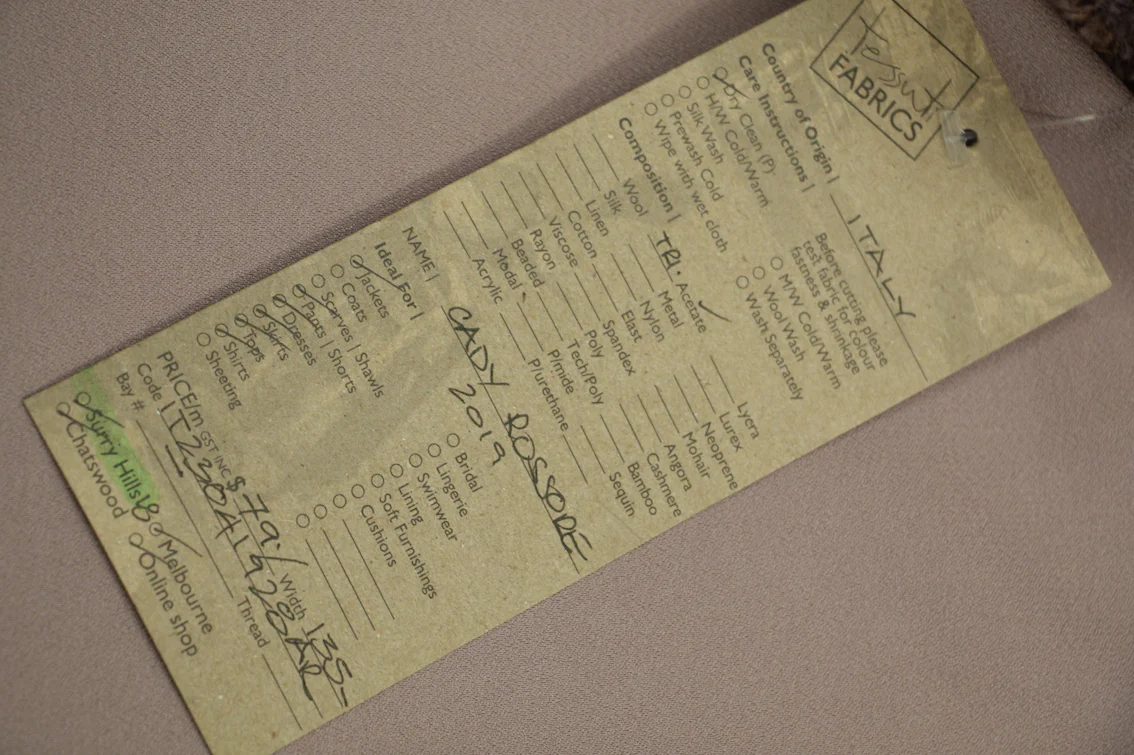 Tessuti
FABRICS
Country of Origin | ITALY
Care Instructions |
Before cutting please
test fabric for colour
fastness & shrinkage
Dry Clean (P)
H/W Cold/Warm
Silk Wash
Prewash Cold
Wipe with wet cloth
M/W Cold/Warm
Wool Wash
Wash Separately
Composition | TRI. Acetate
Wool
Silk
Linen
Cotton
Viscose
Rayon
Beaded
Modal
Acrylic
Metal
Nylon
Elast
Spandex
Poly
Tech/Poly
P/mide
P/urethane
Lycra
Lurex
Neoprene
Mohair
Angora
Cashmere
Bamboo
Sequin
NAME | CADY ROSSORE
2019
Ideal For |
Jackets
Coats
Scarves | Shawls
Pants | Shorts
Dresses
Skirts
Tops
Shirts
Sheeting
Bridal
Lingerie
Swimwear
Lining
Soft Furnishings
Cushions
PRICE/m GST INC $79.- Width 135-
Code
Bay #
Thread
Surry Hills
Chatswood
Melbourne
Online shop